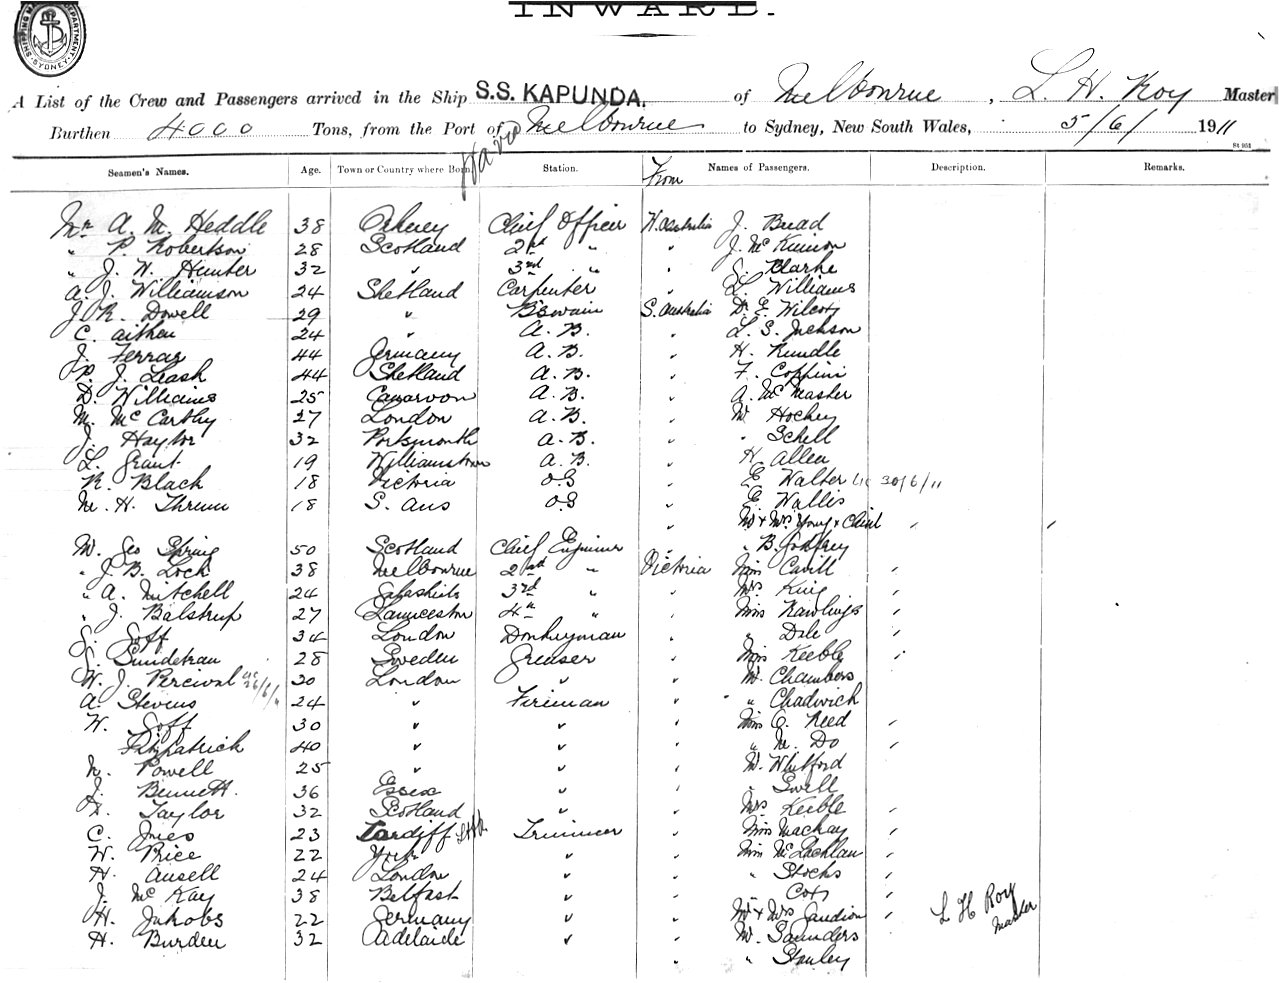 INWARD.
SHIPPING MASTER'S DEPARTMENT SYDNEY
A List of the Crew and Passengers arrived in the Ship S.S. KAPUNDA. of Melbourne, L. H. Roy Master
Burthen 4000 Tons, from the Port of Melbourne to Sydney, New South Wales, 5/6/1911
Seamen's Names. Age. Town or Country where Born. Station. From Names of Passengers. Description. Remarks.
Mr A. M. Heddle 38 Orkney Chief Officer W. Australia J. Bread
" P. Robertson 28 Scotland 2nd " " J. McKinnon
" J. W. Hunter 32 " 3rd " " S. Clarke
A. J. Williamson 24 Shetland Carpenter " L. Williams
J. R. Dowell 29 " B'swain S. Australia Dr E. Wilcox
C. Aitken 24 " A. B. " L. S. Jackson
J. Ferrar 44 Germany A. B. " H. Rundle
P. J. Leask 44 Shetland A. B. " F. Coppini
D. Williams 25 Canarvon A. B. " A. McMaster
M. McCarthy 27 London A. B. " Mr Hockey
J. Haylor 32 Portsmouth A. B. " " Schell
L. Grant 19 Williamstown A. B. " H. Allen
R. Black 18 Victoria OS " E Walter 30/6/11
M. H. Thrum 18 S. Aus OS " E. Wallis
" Mr & Mrs Young & Child "
W. Geo Spring 50 Scotland Chief Engineer " " B. Godfrey
" J. B. Lock 38 Melbourne 2nd " Victoria Miss Cavill "
" A. Mitchell 24 Galashiels 3rd " " Mrs King "
" J. Balstrup 27 Launceston 4th " " Miss Rawlings "
S. Goff 34 London Donkeyman " " Dale "
S. Sundetrau 28 Sweden Greaser " Miss Keeble "
W. J. Percival 26/6/11 30 London " " Mr Chambers
A. Stevens 24 " Fireman " " Chadwick
W. Goff 30 " " " Miss C. Reed "
Fitzpatrick 40 " " " " M. Do "
N. Powell 25 " " " Mr Whitford
J. Bennett. 36 Essex " " " Swell
H. Taylor 32 Scotland " " Mrs Keeble "
C. Jones 23 Cardiff LHR Trimmer " Miss Mackay "
W. Price 22 York " " Miss McLachlan "
H. Ansell 24 London " " " Stocks "
J. McKay 38 Belfast " " " Cox "
H. Jakobs 22 Germany " " Mr & Mrs Gaudion " L H Roy
H. Burden 32 Adelaide " " Mr Saunders Master
" " Stanley